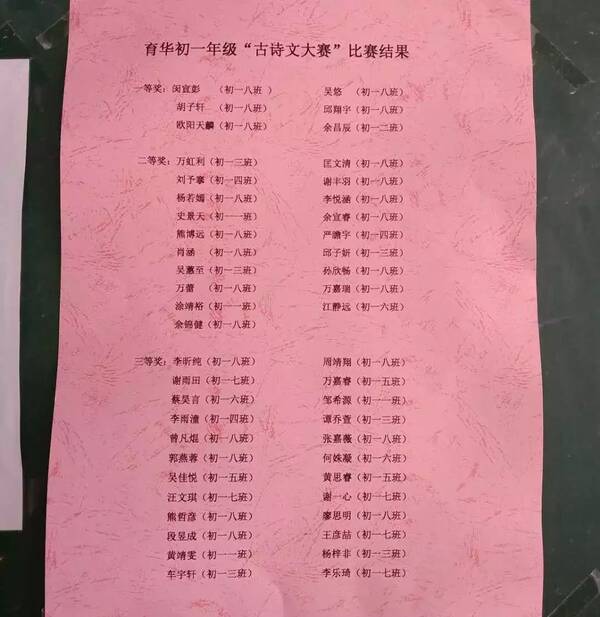 育华初一年级“古诗文大赛”比赛结果
一等奖：闵宣彭 （初一八班） 吴悠 （初一八班）
胡子轩 （初一八班） 邱翔宇（初一八班）
欧阳天麟（初一八班） 余昌辰（初一二班）
二等奖：万虹利（初一三班） 匡文清（初一八班）
刘予搴（初一四班） 谢丰羽（初一八班）
杨若嫣（初一八班） 李悦涵（初一八班）
史景天（初一一班） 余宣睿（初一八班）
熊博远（初一八班） 严瞻宇（初一四班）
肖涵 （初一八班） 邱子妍（初一三班）
吴蕙至（初一三班） 孙欣畅（初一八班）
万蕾 （初一八班） 万嘉瑞（初一八班）
涂靖裕（初一一班） 江静远（初一六班）
余锦健（初一八班）
三等奖：李昕纯（初一八班） 周靖翔（初一八班）
谢雨田（初一七班） 万嘉睿（初一五班）
蔡昊言（初一六班） 邹希源（初一一班）
李雨潼（初一四班） 谭乔萱（初一三班）
曾凡焜（初一八班） 张嘉薇（初一八班）
郭燕蓉（初一八班） 何姝凝（初一六班）
吴佳悦（初一五班） 黄思睿（初一五班）
汪文琪（初一七班） 谢一心（初一七班）
熊哲彦（初一八班） 廖思明（初一八班）
段昱成（初一八班） 王彦喆（初一七班）
黄靖雯（初一一班） 杨梓非（初一三班）
车宇轩（初一三班） 李乐琦（初一七班）